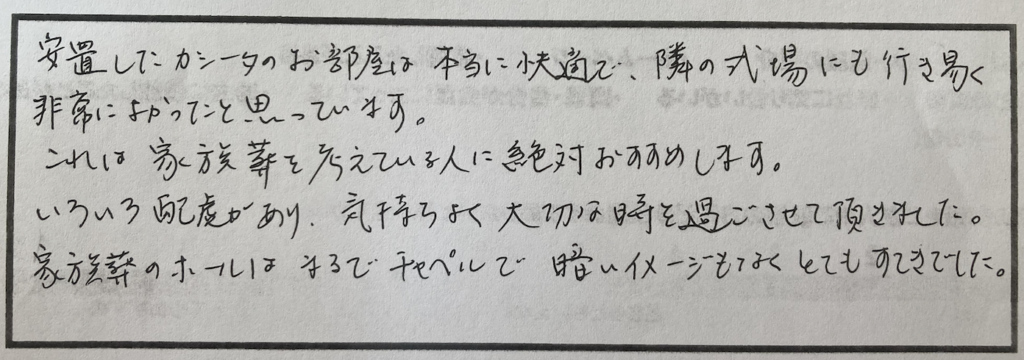 安置したカシータのお部屋は本当に快適で、隣の式場にも行き易く
非常によかったと思っています。
これは家族葬を考えている人に絶対おすすめします。
いろいろ配慮があり、気持ちよく大切な時を過ごさせて頂きました。
家族葬のホールはまるでチャペルで暗いイメージもなくとてもすてきでした。